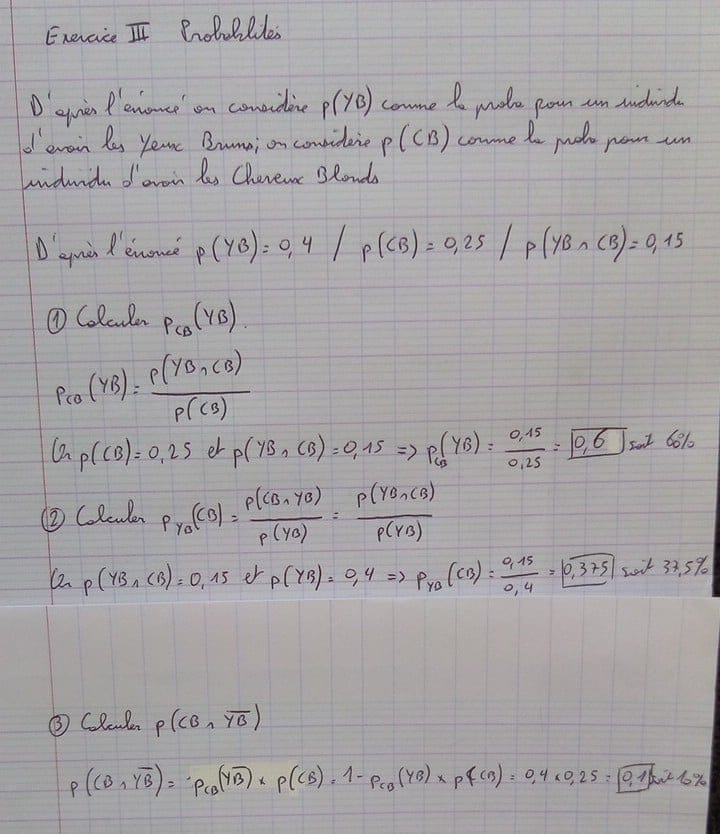 Exercice III Probabilités
D'après l'énoncé on considère p(YB) comme la proba pour un individu
d'avoir les Yeux Bruns; on considère p(CB) comme la proba pour un
individu d'avoir les Cheveux Blonds
D'après l'énoncé p(YB)=0,4 / p(CB)=0,25 / p(YB∩CB)=0,15
① Calculer p_CB(YB).
p_CB(YB) = p(YB∩CB) / p(CB)
Or p(CB)=0,25 et p(YB∩CB)=0,15 => p_CB(YB) = 0,15 / 0,25 = 0,6 soit 60%
② Calculer p_YB(CB) = p(CB∩YB) / p(YB) = p(YB∩CB) / p(YB)
Or p(YB∩CB)=0,15 et p(YB)=0,4 => p_YB(CB) = 0,15 / 0,4 = 0,375 soit 37,5%
③ Calculer p(CB∩Y̅B̅)
p(CB∩Y̅B̅) = p_CB(Y̅B̅) × p(CB) = 1 - p_CB(YB) × p(CB) = 0,4 × 0,25 = 0,1 soit 10%